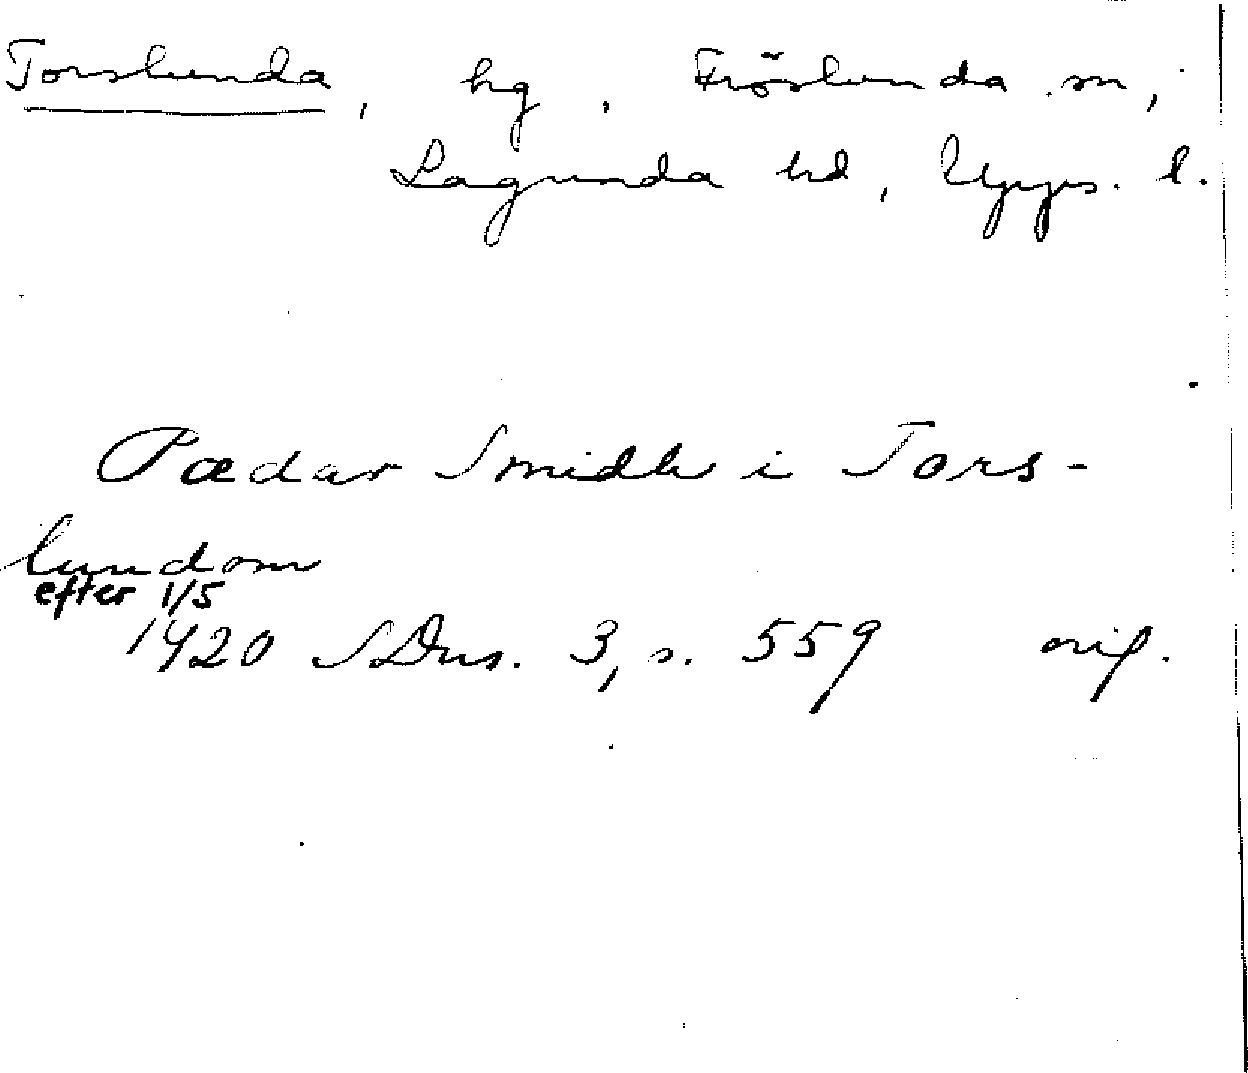 Torslunda, hg, Fröslunda sn,
Lagunda hd, Upps. l.
Pædar Smidh i Tors-
lundom
efter 1/5
1420 SDns. 3, s. 559 orig.